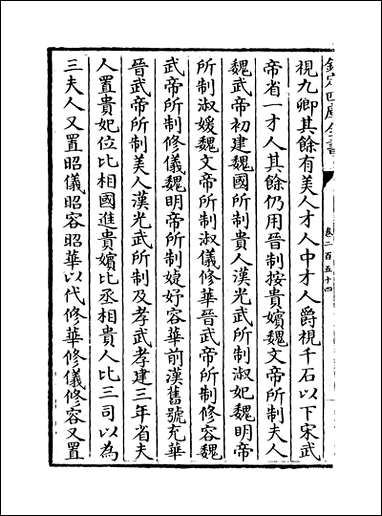 欽定四庫全書
卷二百五十四
視九卿其餘有美人才人中才人爵視千石以下宋武
帝省一才人其餘仍用晉制按貴嬪魏文帝所制夫人
魏武帝初建魏國所制貴人漢光武所制淑妃魏明帝
所制淑媛魏文帝所制淑儀修華晉武帝所制修容魏
武帝所制修儀魏明帝所制婕妤容華前漢舊號充華
晉武帝所制美人漢光武所制及孝武孝建三年省夫
人置貴妃位比相國進貴嬪比丞相貴人比三司以為
三夫人又置昭儀昭容昭華以代修華修儀修容又置